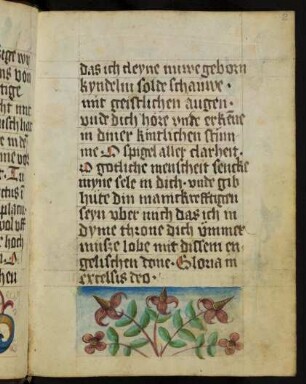 das ich cleyne nuwe geborn
kyndelin solde schauwe ·
mit geistlichen augen ·
vnde dich hore vnde erkene
in diner kintlichen stim
me · O spigel aller clarheit ·
O gotliche menscheit sencke
myne sele in dich · vnde gib
hute din
seyn vber mich das ich in
dyme throne dich ummer
musze lobe mit dissem en
gelischen done · Gloria in
excelsis deo ·